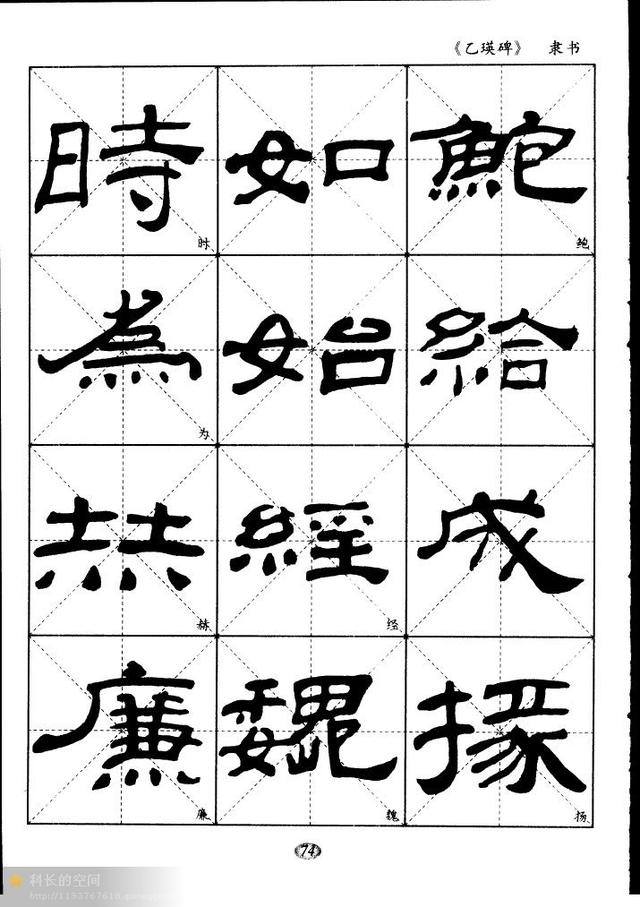 《乙瑛碑》 隶书
時 如 鮑
时 鲍
為 始 給
为
赫 經 成
赫 经
廉 魏 掾
廉 魏 扬
74
科长的空间